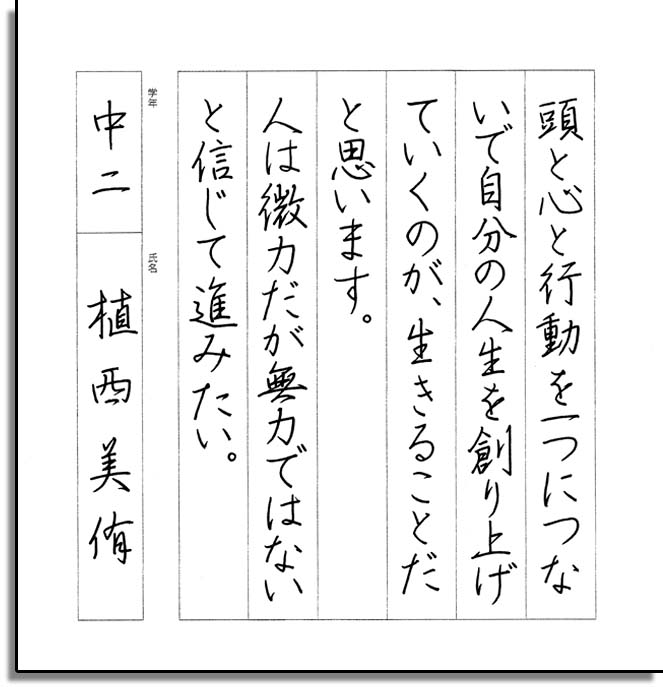 頭と心と行動を一つにつな
いで自分の人生を創り上げ
ていくのが、生きることだ
と思います。
人は微力だが無力ではない
と信じて進みたい。
学年
中二
氏名
植西美侑